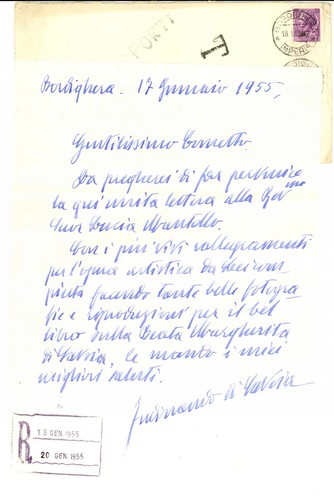 PORTI
T
BORDIGHERA
IMPERIA
Bordighera 17 Gennaio 1955,
Gentilissimo Cornetto
La pregherei di far pervenire
la qui unita lettera alla Rev ma
Suor Lucia Mantello.
Con i più vivi rallegramenti
per l'opera artistica da Lei com-
piuta facendo tante belle fotogra-
fie e riproduzioni per il bel
libro sulla Beata Margherita
di Savoia, le mando i miei
migliori saluti.
di Savoia
R
19 GEN. 1955
20 GEN. 1955